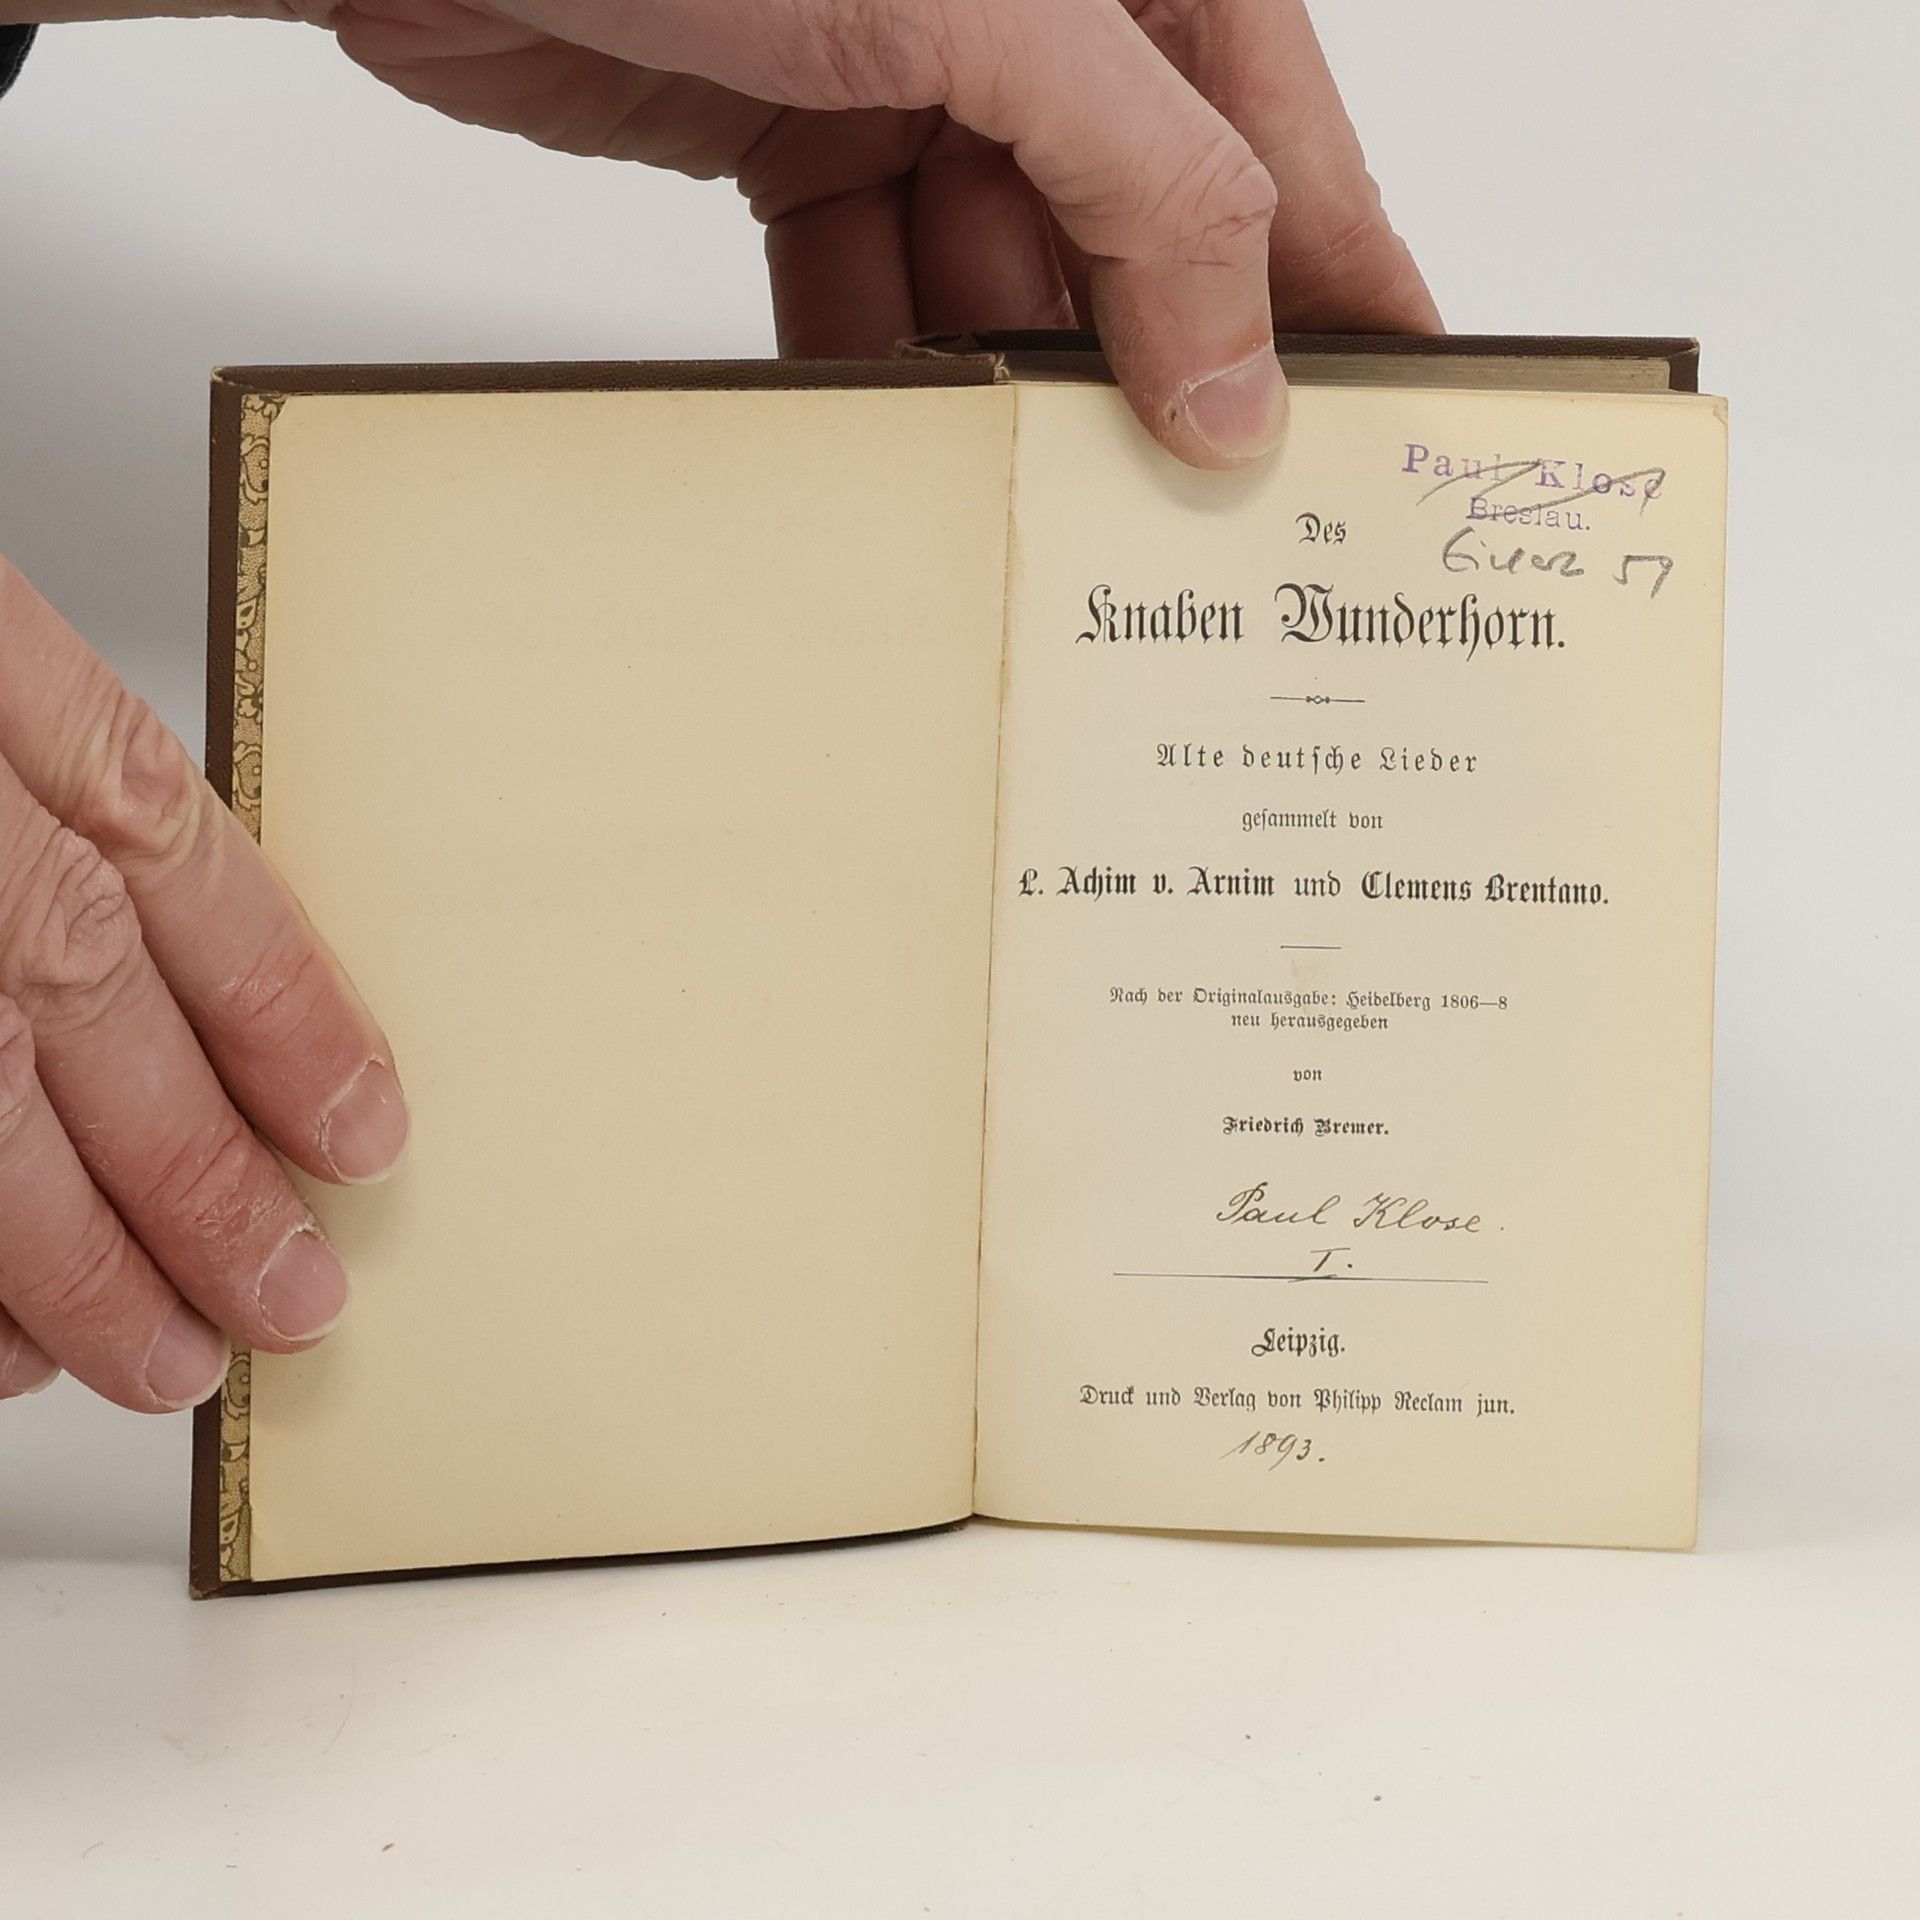 Paul Klose
Breslau.
59
Des
Knaben Wunderhorn.
Alte deutsche Lieder
gesammelt von
L. Achim v. Arnim und Clemens Brentano.
Nach der Originalausgabe: Heidelberg 1806—8
neu herausgegeben
von
Friedrich Bremer.
Paul Klose.
I.
Leipzig.
Druck und Verlag von Philipp Reclam jun.
1893.